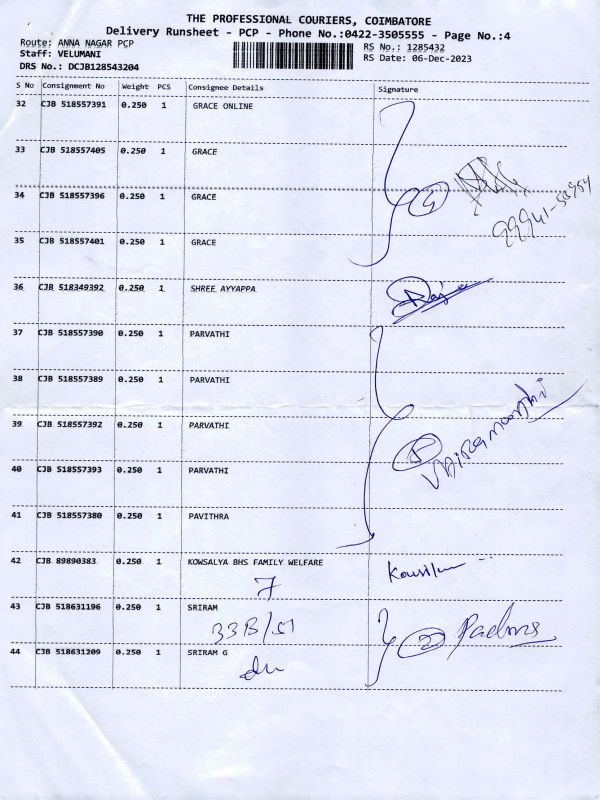 THE PROFESSIONAL COURIERS, COIMBATORE
Delivery Runsheet - PCP - Phone No.:0422-3505555 - Page No.:4
Route: ANNA NAGAR PCP
Staff: VELUMANI
DRS No.: DCJB128543204
RS No.: 1285432
RS Date: 06-Dec-2023
S No Consignment No Weight PCS Consignee Details Signature
32 CJB 518557391 0.250 1 GRACE ONLINE
33 CJB 518557405 0.250 1 GRACE
34 CJB 518557396 0.250 1 GRACE
4
35 CJB 518557401 0.250 1 GRACE
36 CJB 518349392 0.250 1 SHREE AYYAPPA
37 CJB 518557390 0.250 1 PARVATHI
38 CJB 518557389 0.250 1 PARVATHI
39 CJB 518557392 0.250 1 PARVATHI
40 CJB 518557393 0.250 1 PARVATHI
41 CJB 518557380 0.250 1 PAVITHRA
42 CJB 89890383 0.250 1 KOWSALYA BHS FAMILY WELFARE
7
43 CJB 518631196 0.250 1 SRIRAM
33B/51
2 Padma
44 CJB 518631209 0.250 1 SRIRAM G